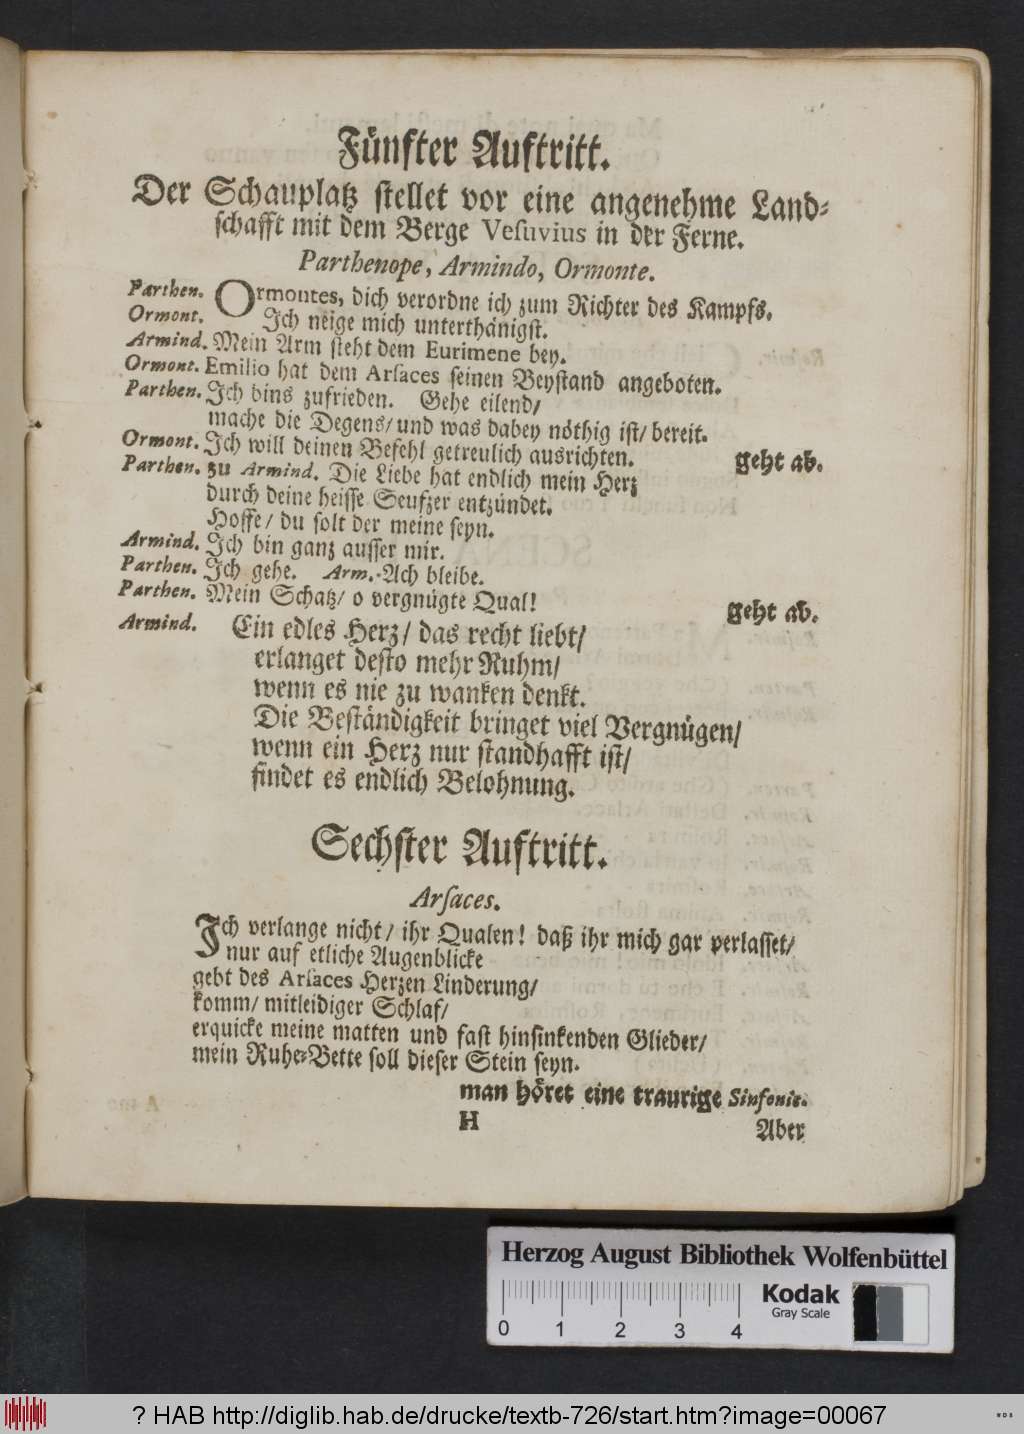 Fünfter Auftritt.
Der Schauplatz stellet vor eine angenehme Land-
schafft mit dem Berge Vesuvius in der Ferne.
Parthenope, Armindo, Ormonte.
Parthen. Ormontes, dich verordne ich zum Richter des Kampfs.
Ormont. Ich neige mich unterthänigst.
Armind. Mein Arm steht dem Eurimene bey.
Ormont. Emilio hat dem Arsaces seinen Beystand angeboten.
Parthen. Ich bins zufrieden. Gehe eilend/
mache die Degens/ und was dabey nöthig ist/ bereit.
Ormont. Ich will deinen Befehl getreulich ausrichten. geht ab.
Parthen. zu Armind. Die Liebe hat endlich mein Herz
durch deine heisse Seufzer entzündet.
Hoffe/ du solt der meine seyn.
Armind. Ich bin ganz ausser mir.
Parthen. Ich gehe. Arm. Ach bleibe.
Parthen. Mein Schatz/ o vergnügte Qual! geht ab.
Armind. Ein edles Herz/ das recht liebt/
erlanget desto mehr Ruhm/
wenn es nie zu wanken denkt.
Die Beständigkeit bringet viel Vergnügen/
wenn ein Herz nur standhafft ist/
findet es endlich Belohnung.
Sechster Auftritt.
Arsaces.
Ich verlange nicht/ ihr Qualen! daß ihr mich gar verlasset/
nur auf etliche Augenblicke
gebt des Arsaces Herzen Linderung/
komm/ mitleidiger Schlaf/
erquicke meine matten und fast hinsinkenden Glieder/
mein Ruhe-Bette soll dieser Stein seyn.
man höret eine traurige Sinfonie.
H
Aber
Herzog August Bibliothek Wolfenbüttel
Kodak
Gray Scale
0 1 2 3 4
? HAB http://diglib.hab.de/drucke/textb-726/start.htm?image=00067